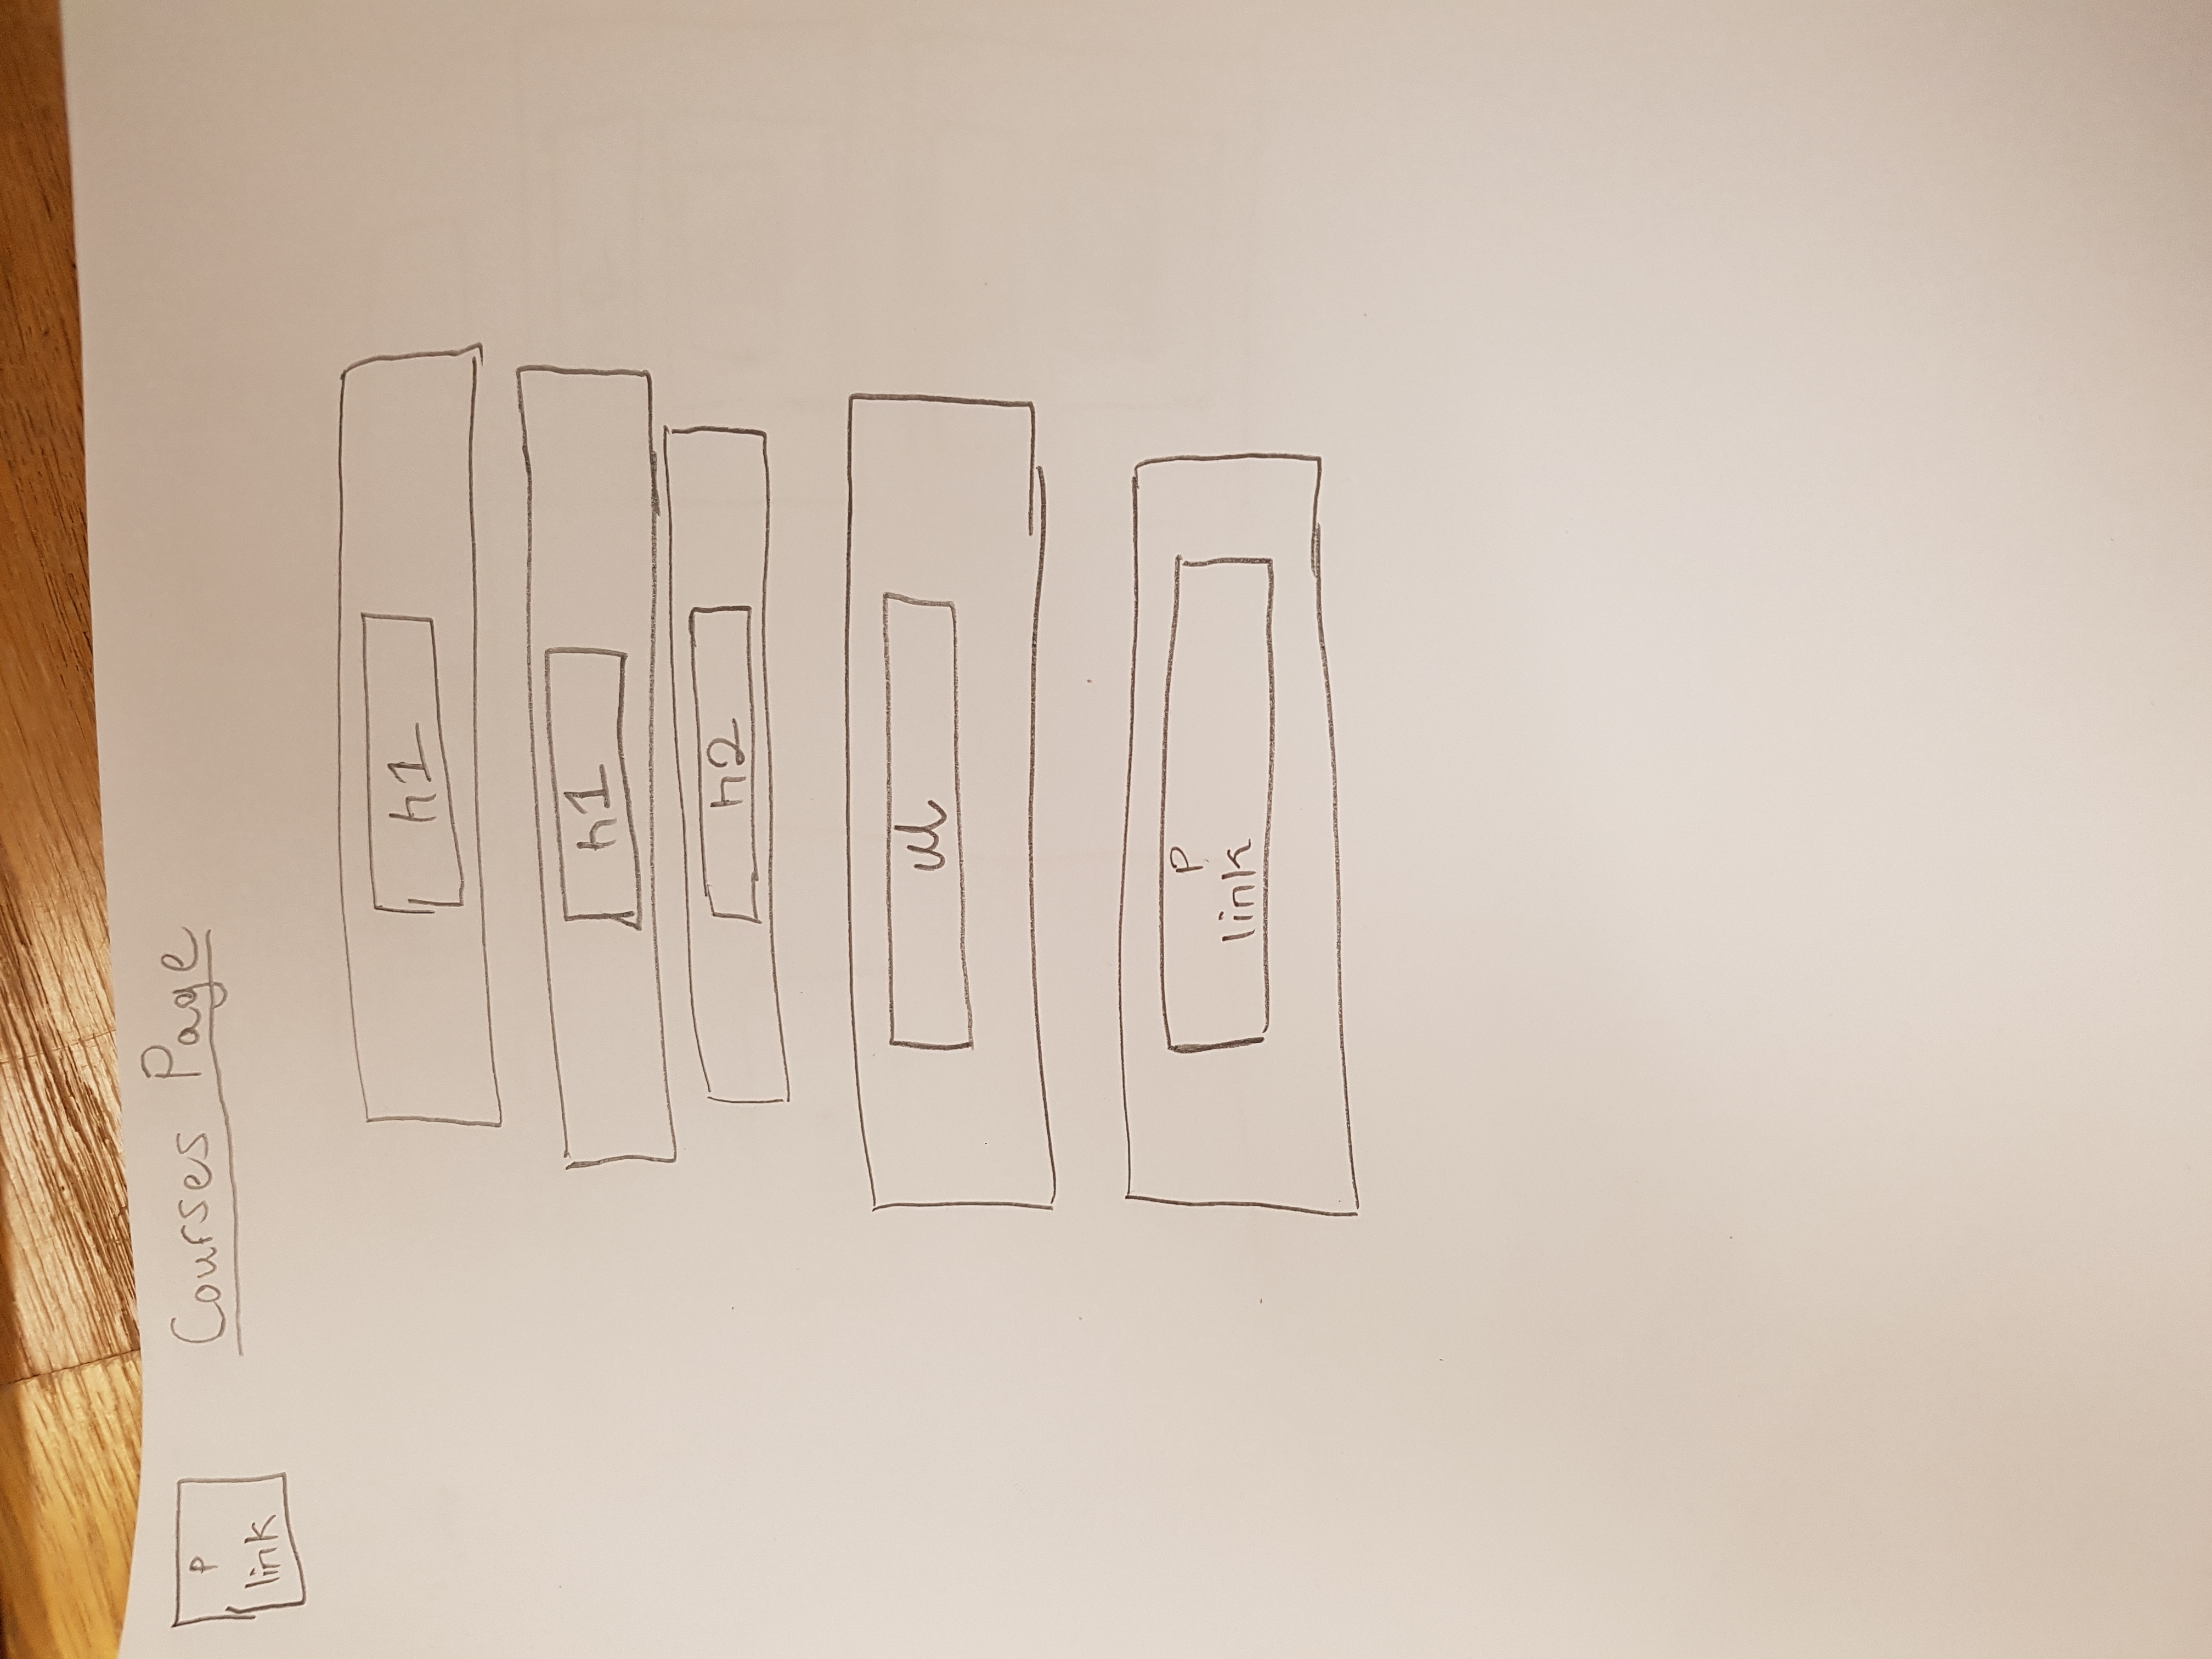 P
link
Courses Page
h1
h1
h2
ul
P
link